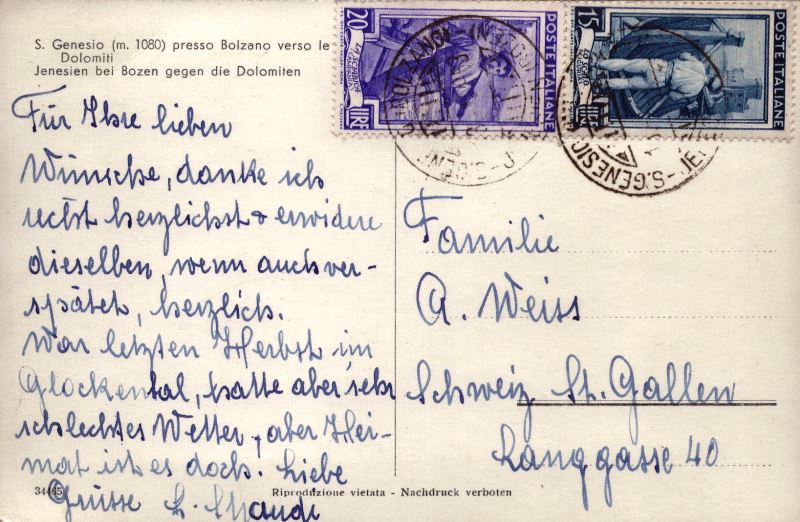 S. Genesio (m. 1080) presso Bolzano verso le
Dolomiti
Jenesien bei Bozen gegen die Dolomiten
20 LIRE
POSTE ITALIANE
15 LIRE
POSTE ITALIANE
Für Ihre lieben
Wünsche, danke ich
recht herzlichst & erwidere
dieselben, wenn auch ver-
spätet, herzlich.
War letzten Herbst im
Glockental, hatte aber sehr
schlechtes Wetter, aber Hei-
mat ist es doch. Liebe
Grüsse
Familie
A. Weiss
Schweiz St. Gallen
Langgasse 40
34465
Riproduzione vietata - Nachdruck verboten